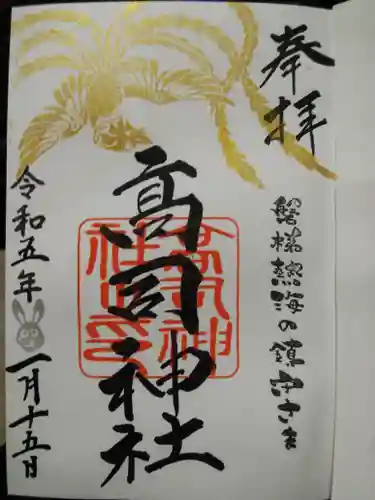 奉拝
磐梯熱海の鎮守さま
高司神社
高司神社印
令和五年
一月十五日